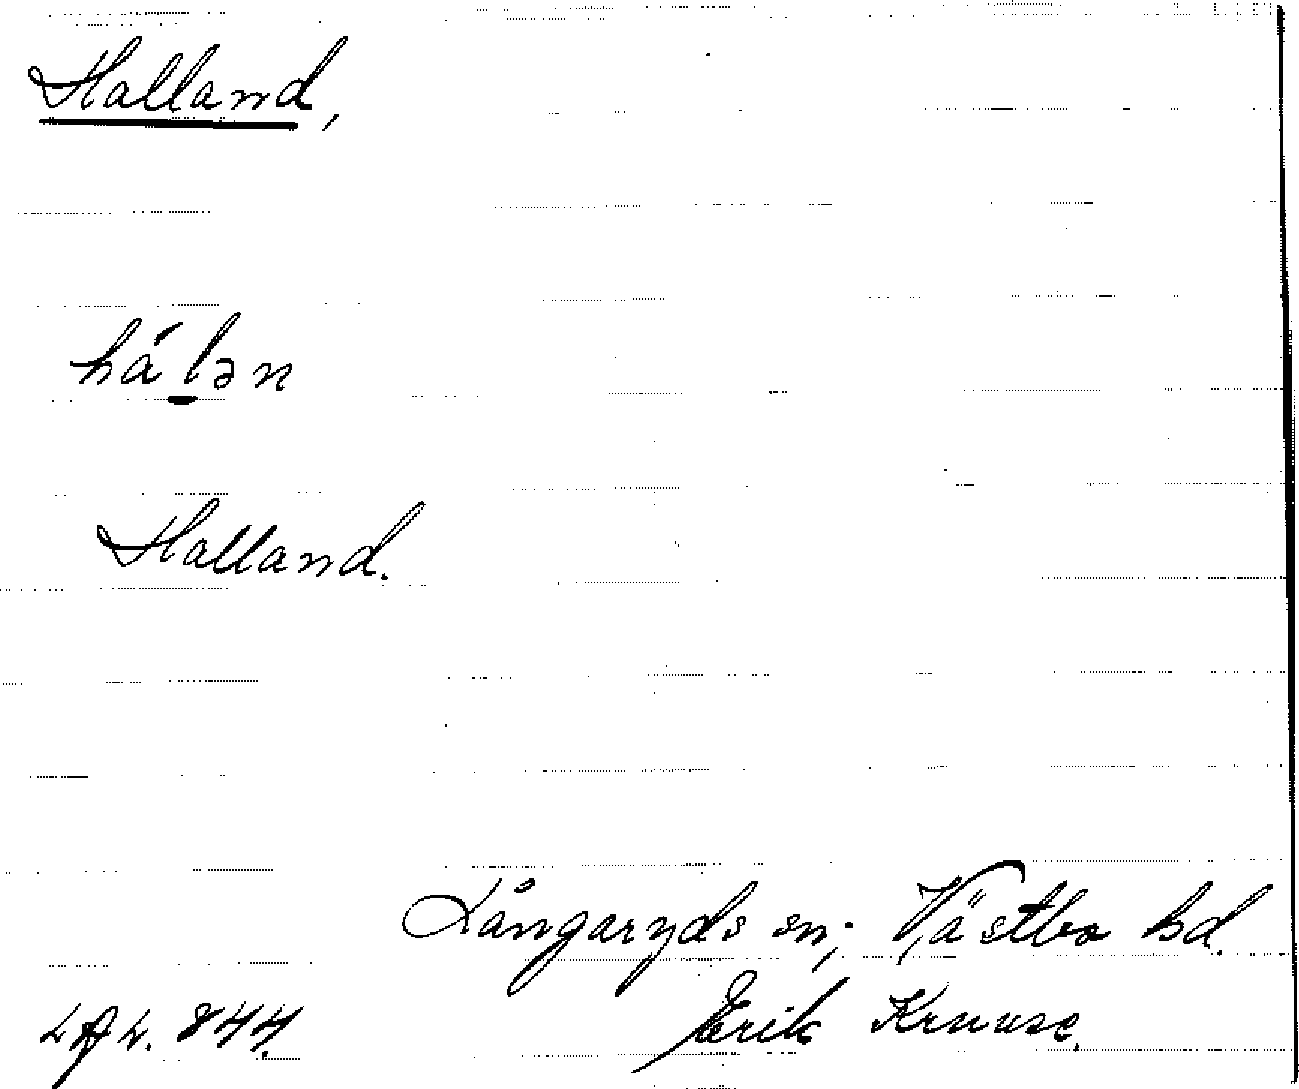 Halland,
há lən
Halland.
Långaryds sn; Västbo hd.
Erik Kruuse.
844.